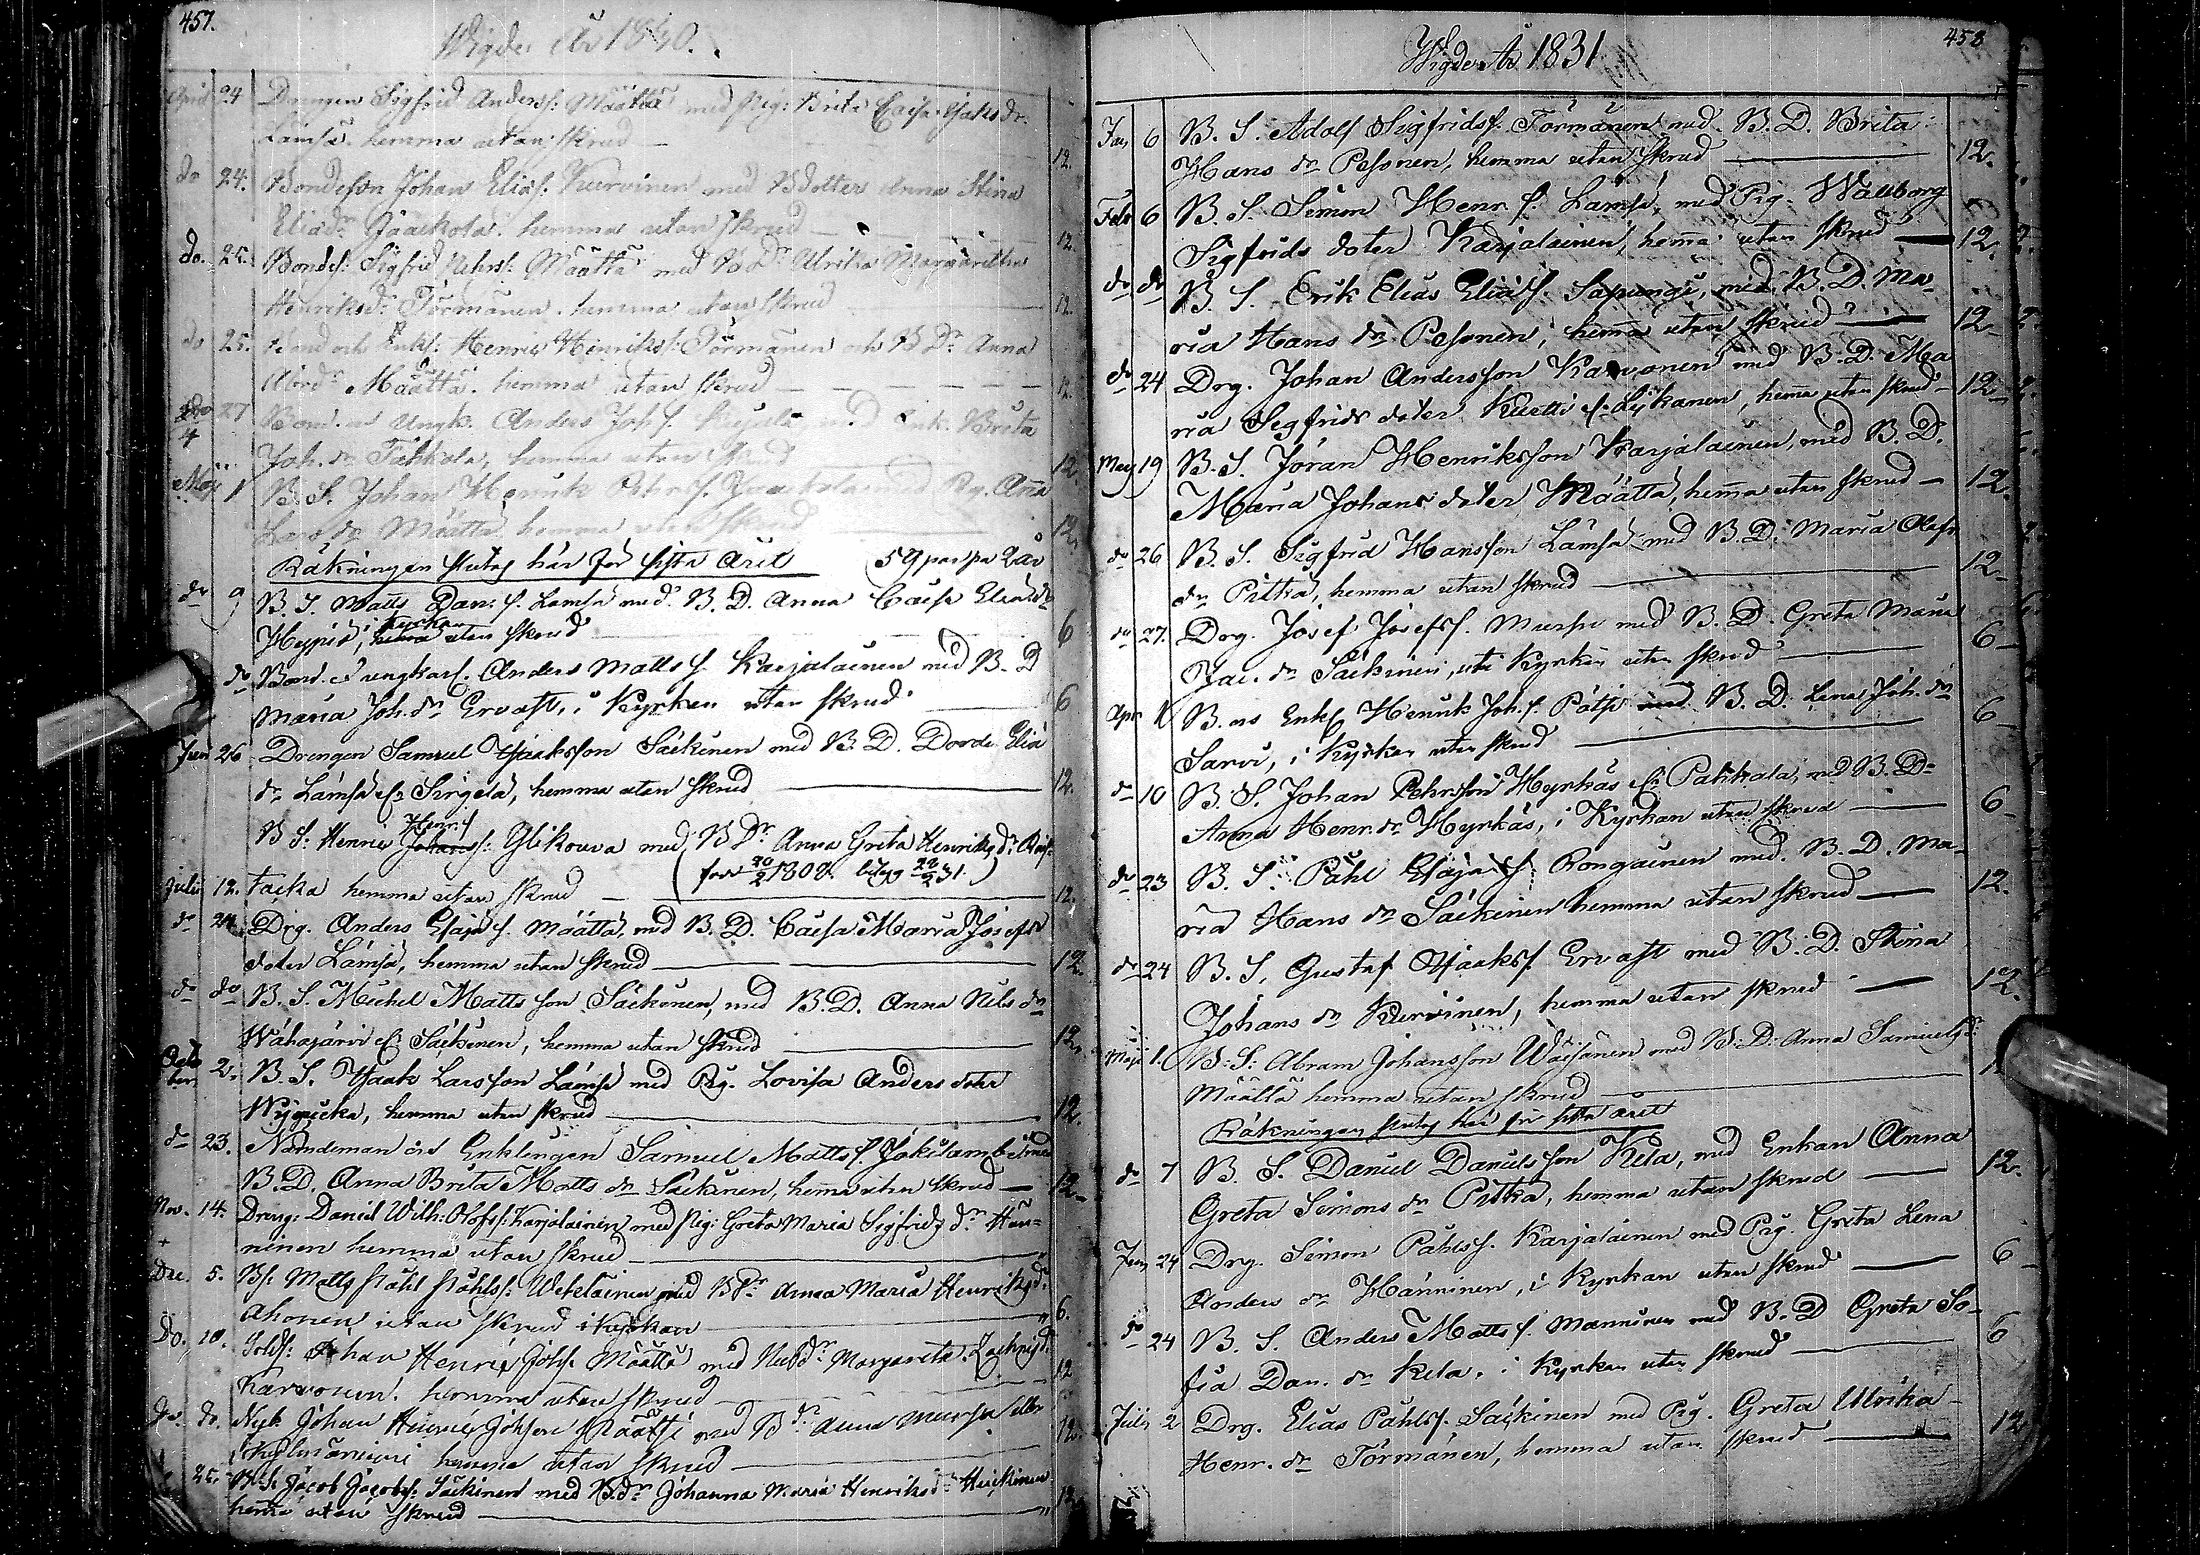 457.
Wigde År 1830.
April 24 Drengen Sigfrid Anders s: Määttä med Pig: Brita Caisa Isaks dr
Lämsä hemma utan skrud 12.
do 24. Bondeson Johan Elias s. Kurvinen med Bdotter Anna Stina
Elias dr Jaakola hemma utan skrud 12.
do. 25. Bondes: Sigfrid Pehrs s: Määttä med Bd dr Ulrika Margaretha
Henriks dr Törmänen. hemma utan skrud 12.
do 25. Bond och Enkl: Henric Henrikss: Törmänen och B Dr Anna
Määttä. hemma utan skrud 12.
27 Bond. os ungk. Anders Joh s. med Enk. Brita
Joh. dr Takkala, hemma utan skrud 12.
Maij 1 B. S. Johan Henrik Pehrs s. Jaakola med Pig. Anna
Lars dr Määttä hemma utan skrud 12.
Räkningen slutas här för sista året 59 par på 2 år
do 9 B. S. Matts Dan. s. Lämsä med B. D. Anna Caisa Elias dr
Hyppiö, i Kyrkan utan skrud 6
do Bond. S ungkarl. Anders Matts s. Karjalainen med B. D
Maria Joh. dr Ervast, i Kyrkan utan skrud 6
Jun 26 Drengen Samuel Isaksson Säckinen med B. D. Dorde Elia
dr Lämsä el. Sirgelä, hemma utan skrud 12.
B S: Henric Henr. s Johans s: Ylikouva med B Dr Anna Greta Henriks dr Rais
(född 20/2 1808. betyg 22/2 31.)
Julii 12. tacka hemma utan skrud 12.
do 24 Drg. Anders Esajæ s. Määttä, med B. D. Caisa Maria Josefs
doter Lämsä, hemma utan skrud 12.
do do B. S. Michel Mattsson Säckinen, med B. D. Anna Nils dr
Wähäjärvi el. Säckinen, hemma utan skrud 12.
Octo ber 2. B. S. Isaak Larsson Lämsä med Pig. Lovisa Anders doter
hemma utan skrud 12.
do 23. Nämdeman ock Enklingen Samuel Matts s. Jokilambi med
B. D. Anna Brita Matts dr Säckinen, hemma utan skrud 12
Nov. 14. Dreng: Daniel Wilh: Olofss: Karjalainen med Pig: Greta Maria Sigfrids dr Hän-
ninen hemma utan skrud
Dec. 5. Bs: Matts Påhl Påhlss: Wetelainen med B Dr Anna Maria Henriks dr
Ahonen utan skrud i Kyrkan 6.
Do. 10. Sold: Johan Henric Johs: Määttä med Margareta Zachris dr
Karvonen. hemma utan skrud 12
Do. do. Nyb Johan Henric Johsson Määttä med B dr Anna Mursu eller
hemma utan skrud 12
25. Bs: Jacob Jacobs s: Säckinen med B. dr Johanna Maria Henriks dr Heickinen
hemma utan skrud 12
458
Wigde År 1831
Jan 6 B. S. Adolf Sigfrids s. Törmänen med B. D. Brita
Hans dr Pesonen, hemma utan skrud 12.
Febr 6 B. S. Simon Henr. s. Lämsä, med Pig. Walborg
Sigfrids doter Karjalainen, hemma utan skrud 12.
do do B. S. Erik Elias Elias s. Sapungi, med B. D. Ma-
ria Hans dr Pesonen, hemma utan skrud 12
do 24 Drg. Johan Andersson Karvonen med B. D. Ma
ria Segfrids doter Kuetti el. Lykanen, hemma utan skrud 12
19 B. S. Jöran Henriksson Karjalainen, med B. D.
Maria Johans doter Määttä, hemma utan skrud 12.
do 26 B. S. Sigfrid Hansson Lämsä med B. D. Maria Olofs
dr Pitkä, hemma utan skrud 12
do 27. Drg. Josef Josefs s. Mursu med B. D. Greta Maria
Jac. dr Säckinen, uti Kyrkan utan skrud 6
Apr B. os Enkl Henrik Joh. s. Pätsi med B. D. Lena Joh. dr
Sarvi, i Kyrkan utan skrud 6
do 10 B. S. Johan Pehrsson Hyrkäs el. Pakkala, med B. D.
Anna Henr. dr Hyrkäs, i Kyrkan utan skrud 6
do 23 B. S. Påhl Esajæ s. Rongainen med B. D. Ma-
ria Hans dr Säckinen hemma utan skrud 12.
do 24 B. S. Gustaf Isaks s. Ervast med B. D. Stina
Johans dr Kurvinen, hemma utan skrud 12.
Maji 1. B: S: Abram Johansson Wäisänen med B: D: Anna Samuels dr
Määttä hemma utan skrud
Räkningen slutas här för sista året
do 7 B. S. Daniel Danielsson Kela, med Enkan Anna
Greta Simons dr Pitkä, hemma utan skrud 12.
Jun 24 Drg. Simon Påhls s. Karjalainen med Pig. Greta Lena
Anders dr Hänninen, i Kyrkan utan skrud 6
do 24 B. S. Anders Matts s. Manninen med B. D Greta So-
fia Dan. dr Kela. i Kyrkan utan skrud 6
Julii 2 Drg. Elias Påhls s. Säckinen med Pig. Greta Ulrika
Henr. dr Törmänen, hemma utan skrud 12